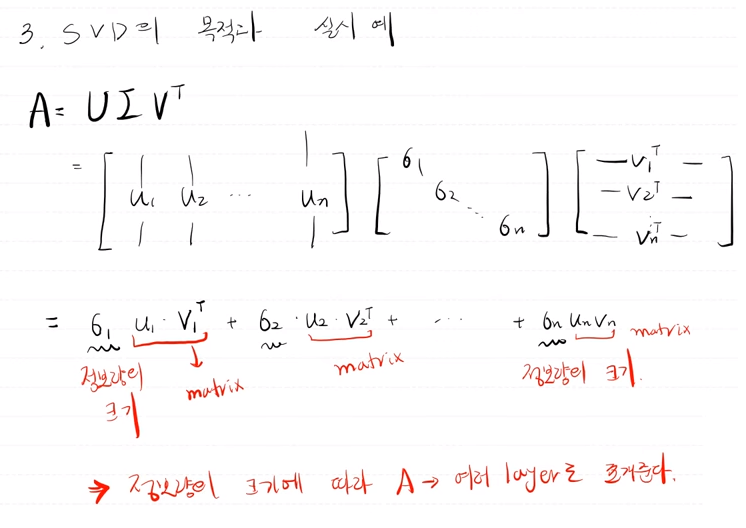 3. SVD의 목적과 실시 예
A = U Σ V^T
= [ u₁ u₂ ⋯ uₙ ] [ σ₁ σ₂ ⋱ σₙ ] [ — v₁^T — — v₂^T — ⋮ — vₙ^T — ]
= σ₁ u₁ · v₁^T + σ₂ · u₂ · v₂^T + ⋯ + σₙ uₙ vₙ
정보량의 크기 matrix matrix 정보량의 크기. matrix
→ 정보량의 크기에 따라 A → 여러 layer로 쪼개준다.